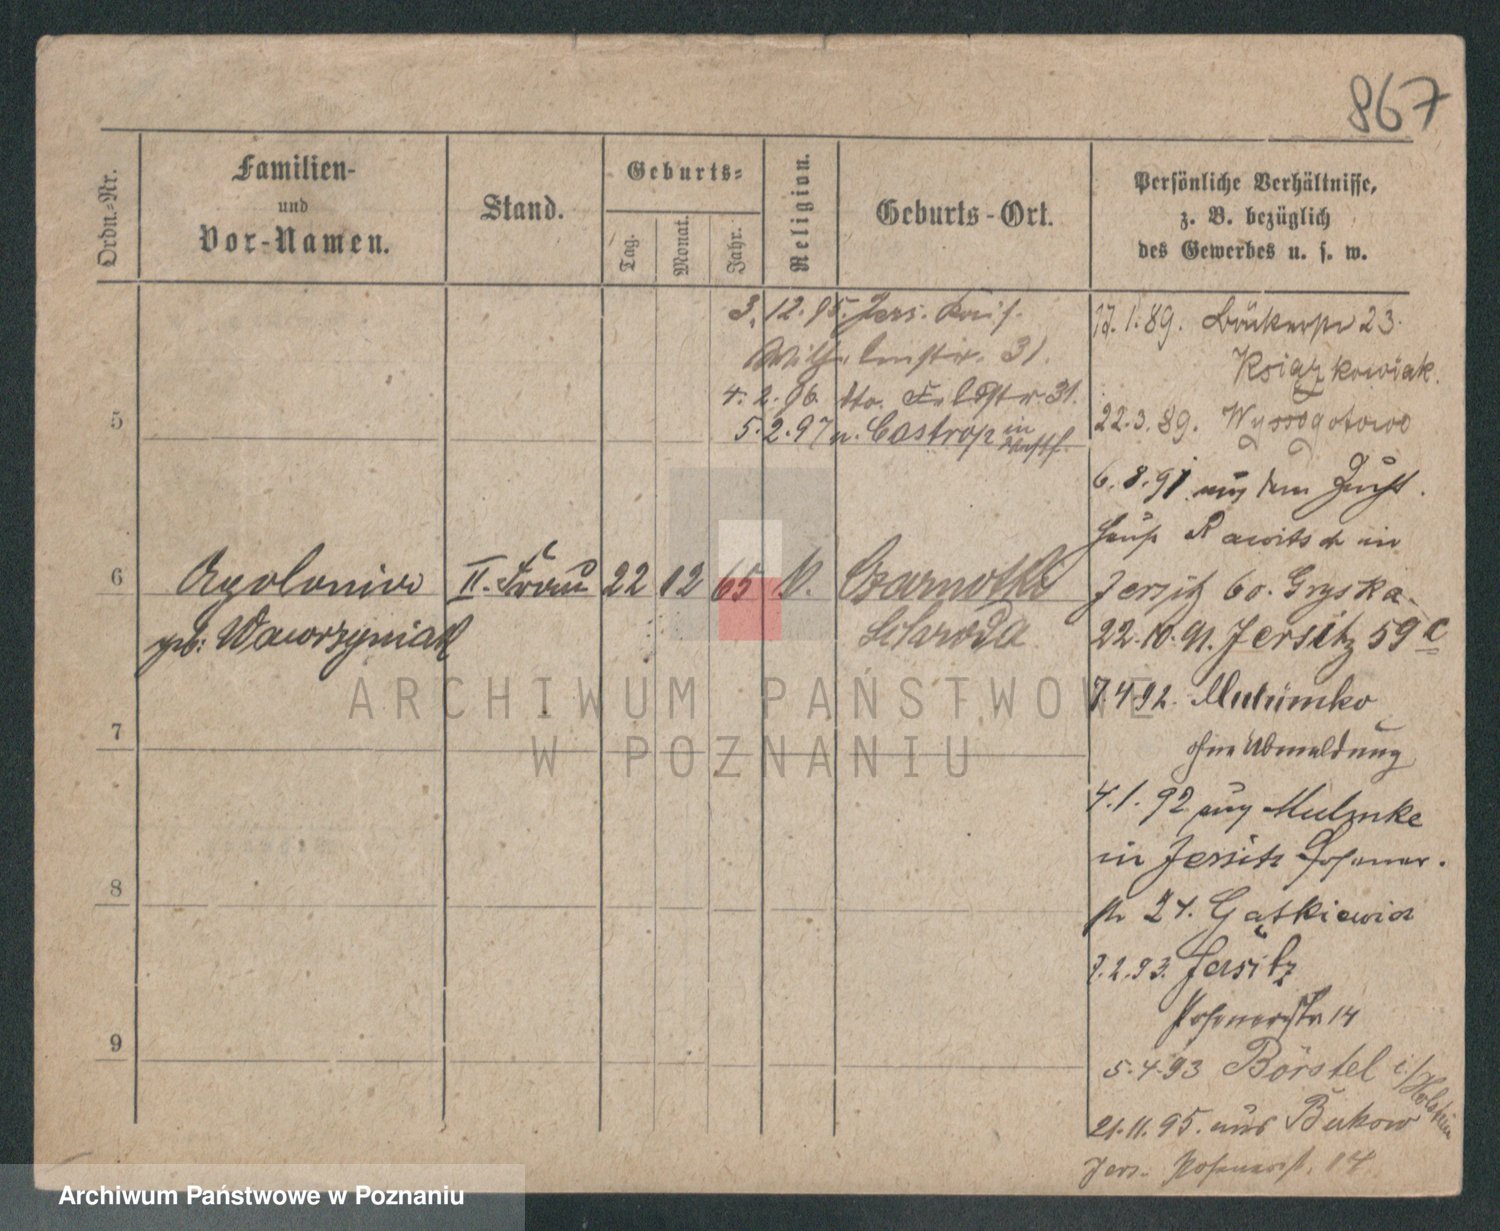 867
Ordn.-Nr.
Familien-
und
Vor-Namen.
Stand.
Geburts-
Tag.
Monat.
Jahr.
Religion.
Geburts-Ort.
Persönliche Verhältnisse,
z. B. bezüglich
des Gewerbes u. s. w.
3.12.95. Jers. Kais.
Wilhelmstr. 31.
4.2.96. dto. Feldstr. 31.
5.2.97 n. Castrop in Westf.
5
6
Apolonia
geb: Wawrzyniak
II. Frau
22
12
65
k.
Czarnotki
Schroda
7
8
9
17.1.89. Bäckerstr 23.
Książkowiak.
22.3.89. Wyssogotowo
6.8.91. aus dem Zucht
haus Rawitsch in
Jersitz 60. Gryska
22.10.91. Jersitz 59c
7.4.92. 
ohne Abmeldung
4.1.92 aus
in Jersitz Posener-
str 24. Gątkiewicz
7.2.93. Jersitz
Posenerstr 14
5.4.93 Börstel i/Holstein
21.11.95. aus Bukow
Jers. Posenerst. 14
ARCHIWUM PAŃSTWOWE
W POZNANIU
Archiwum Państwowe w Poznaniu